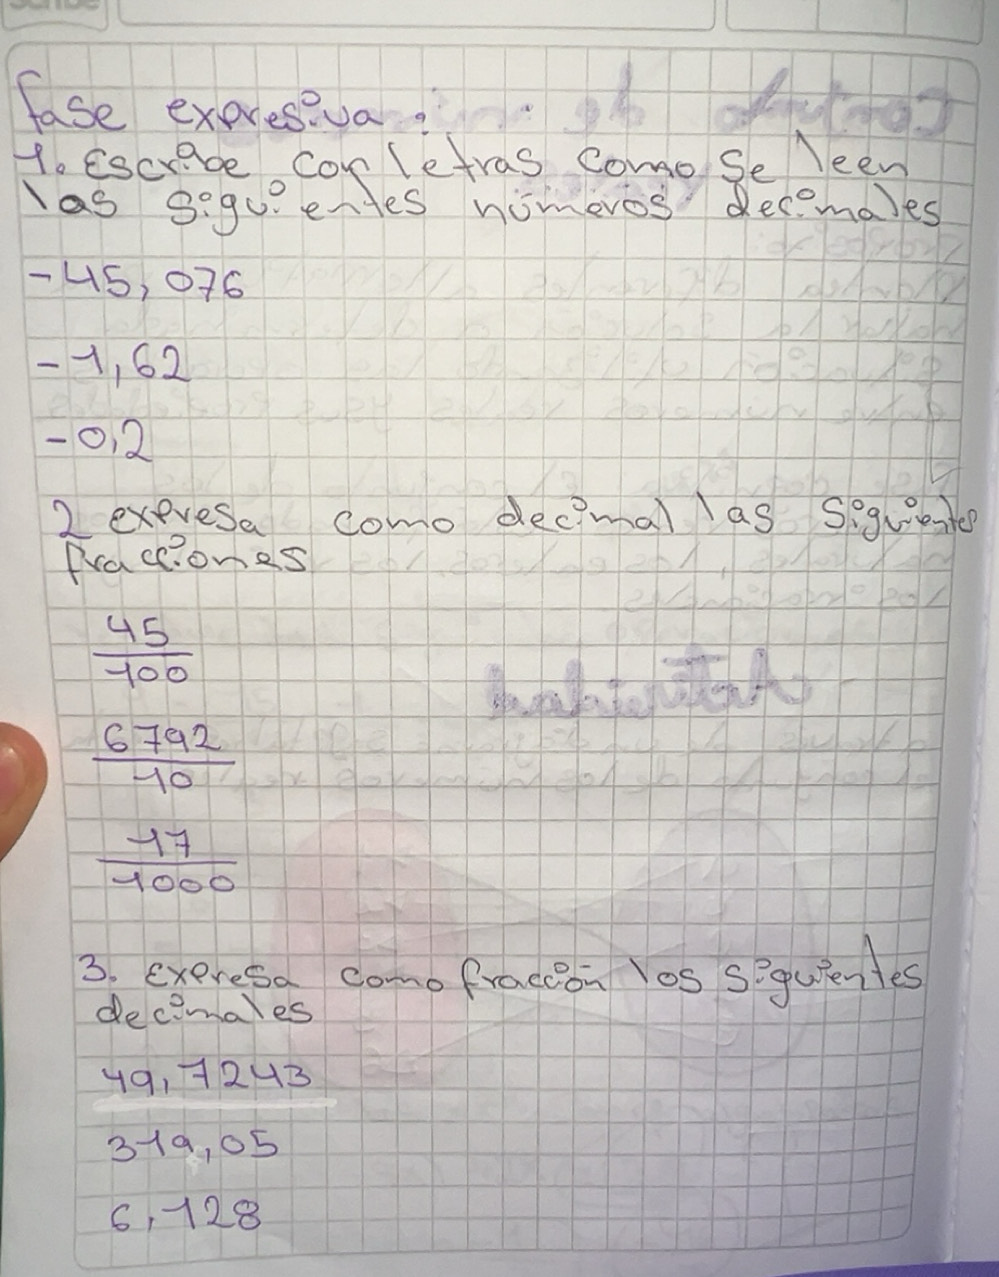 fase expresiva:
1. Escribe con letras como se leen
las siguientes números decimales
-45,076
-1,62
-0,2
2 expresa como decimal las siguientes
fracciones
45
100
6792
10
17
1000
3. expresa como fracción los siguientes
decimales
49,7243
319,05
6,128